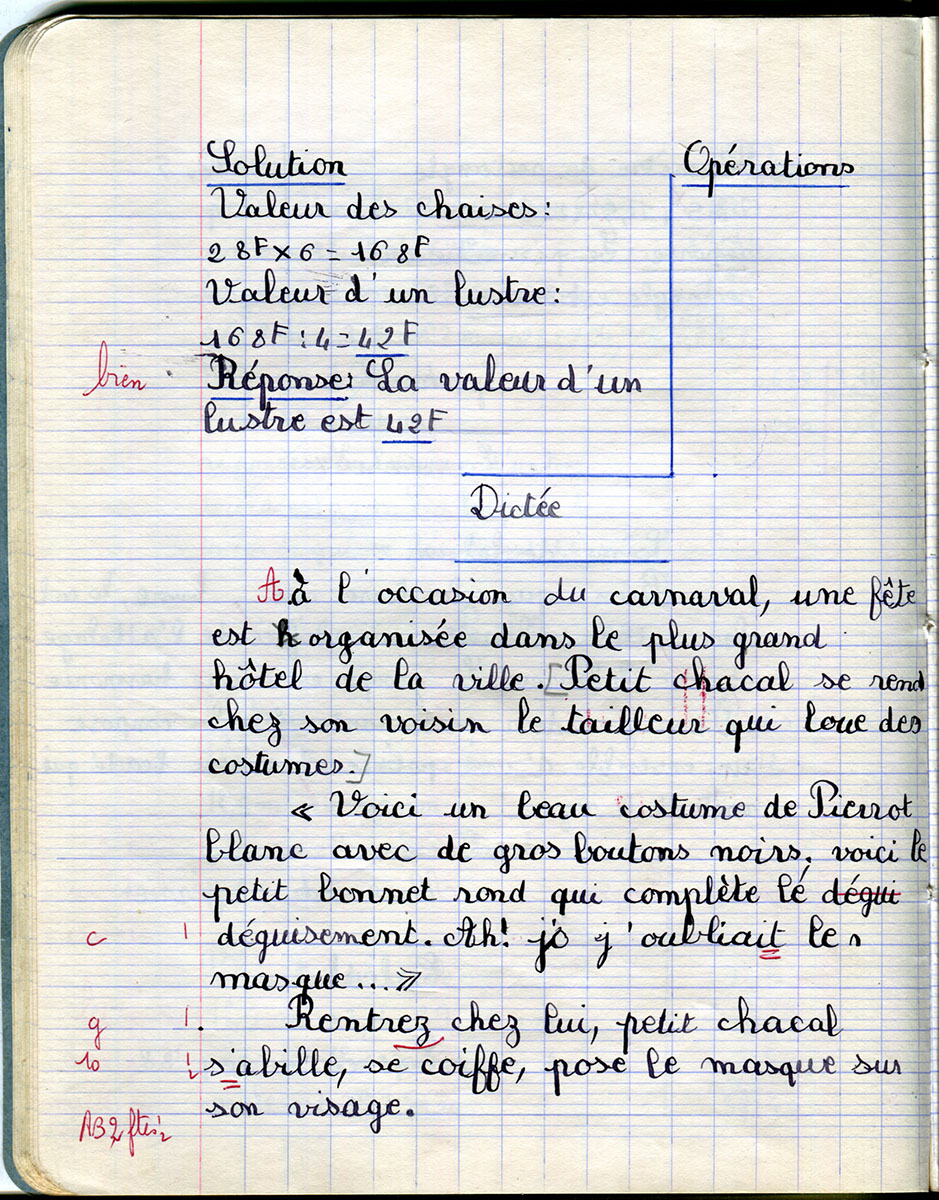 Solution
Opérations
Valeur des chaises:
28F × 6 = 168F
Valeur d'un lustre:
168F : 4 = 42F
bien
Réponse: La valeur d'un
lustre est 42F
Dictée
A à l'occasion du carnaval, une fête
est organisée dans le plus grand
hôtel de la ville. [Petit chacal se rend
chez son voisin le tailleur qui loue des
costumes.]
« Voici un beau costume de Pierrot
blanc avec de gros boutons noirs, voici le
petit bonnet rond qui complète lé dégui
c déguisement. Ah! j'o j'oubliait le
masque...»
g Rentrez chez lui, petit chacal
s'abille, se coiffe, pose le masque sur
son visage.
AB